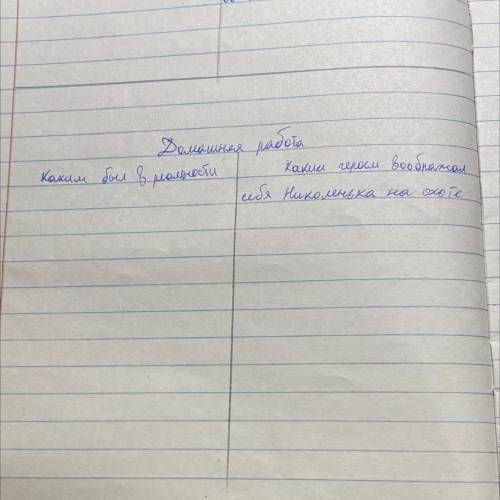 Домашняя работа
Каким был в реальности
Каким героем воображал
себя Николенька на охоте